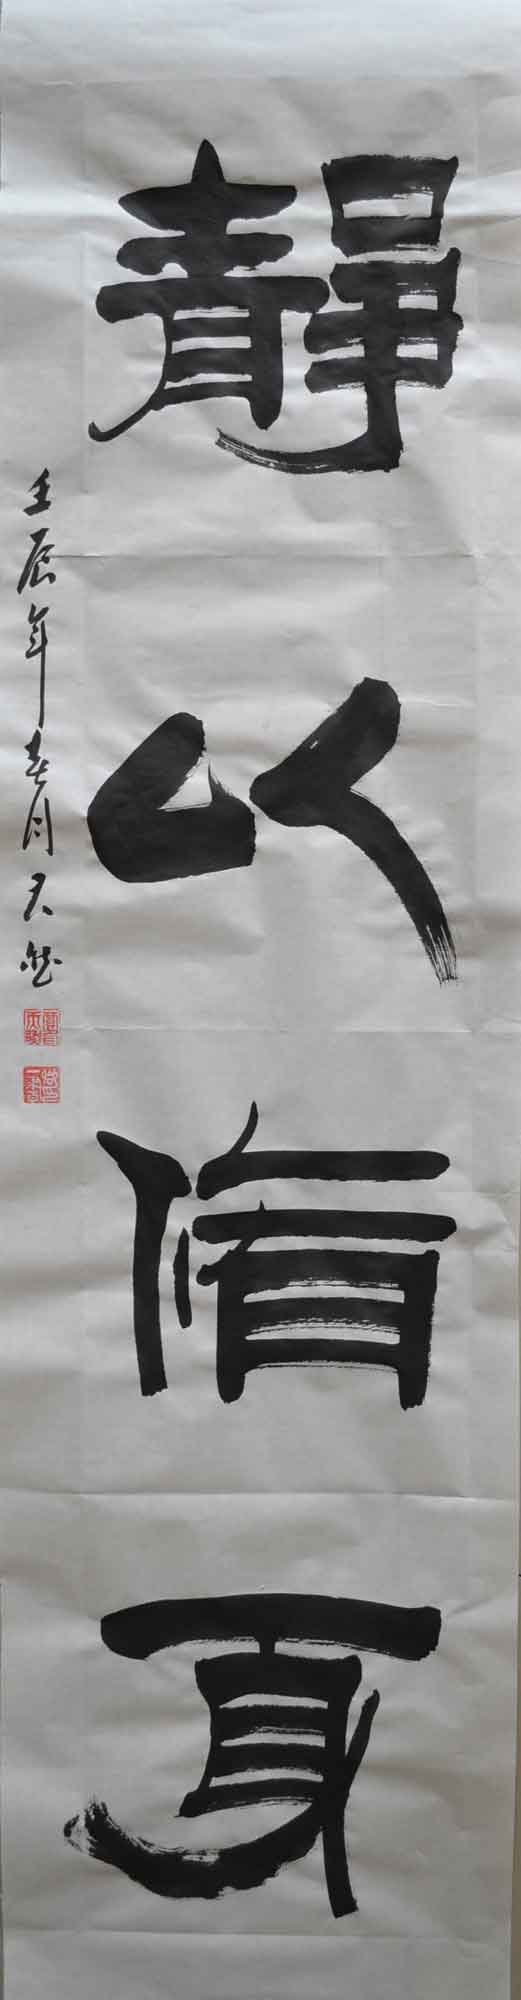 靜以脩身
壬辰年春月